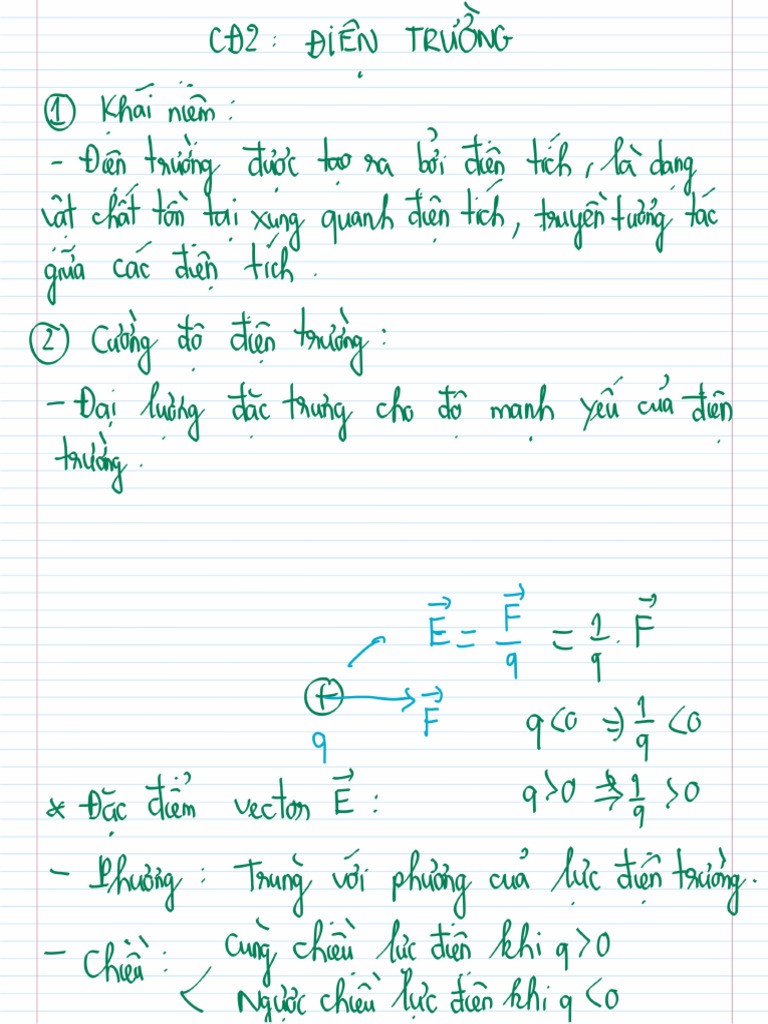 CĐ2: ĐIỆN TRƯỜNG
① Khái niệm:
- Điện trường được tạo ra bởi điện tích, là dạng
vật chất tồn tại xung quanh điện tích, truyền tương tác
giữa các điện tích.
② Cường độ điện trường:
- Đại lượng đặc trưng cho độ mạnh yếu của điện
trường.
E⃗ = F⃗/q = 1/q . F⃗
+ F⃗
q
q<0 ⇒ 1/q <0
q>0 ⇒ 1/q >0
* Đặc điểm vector E⃗ :
- Phương: Trùng với phương của lực điện trường.
- Chiều: Cùng chiều lực điện khi q>0
Ngược chiều lực điện khi q<0